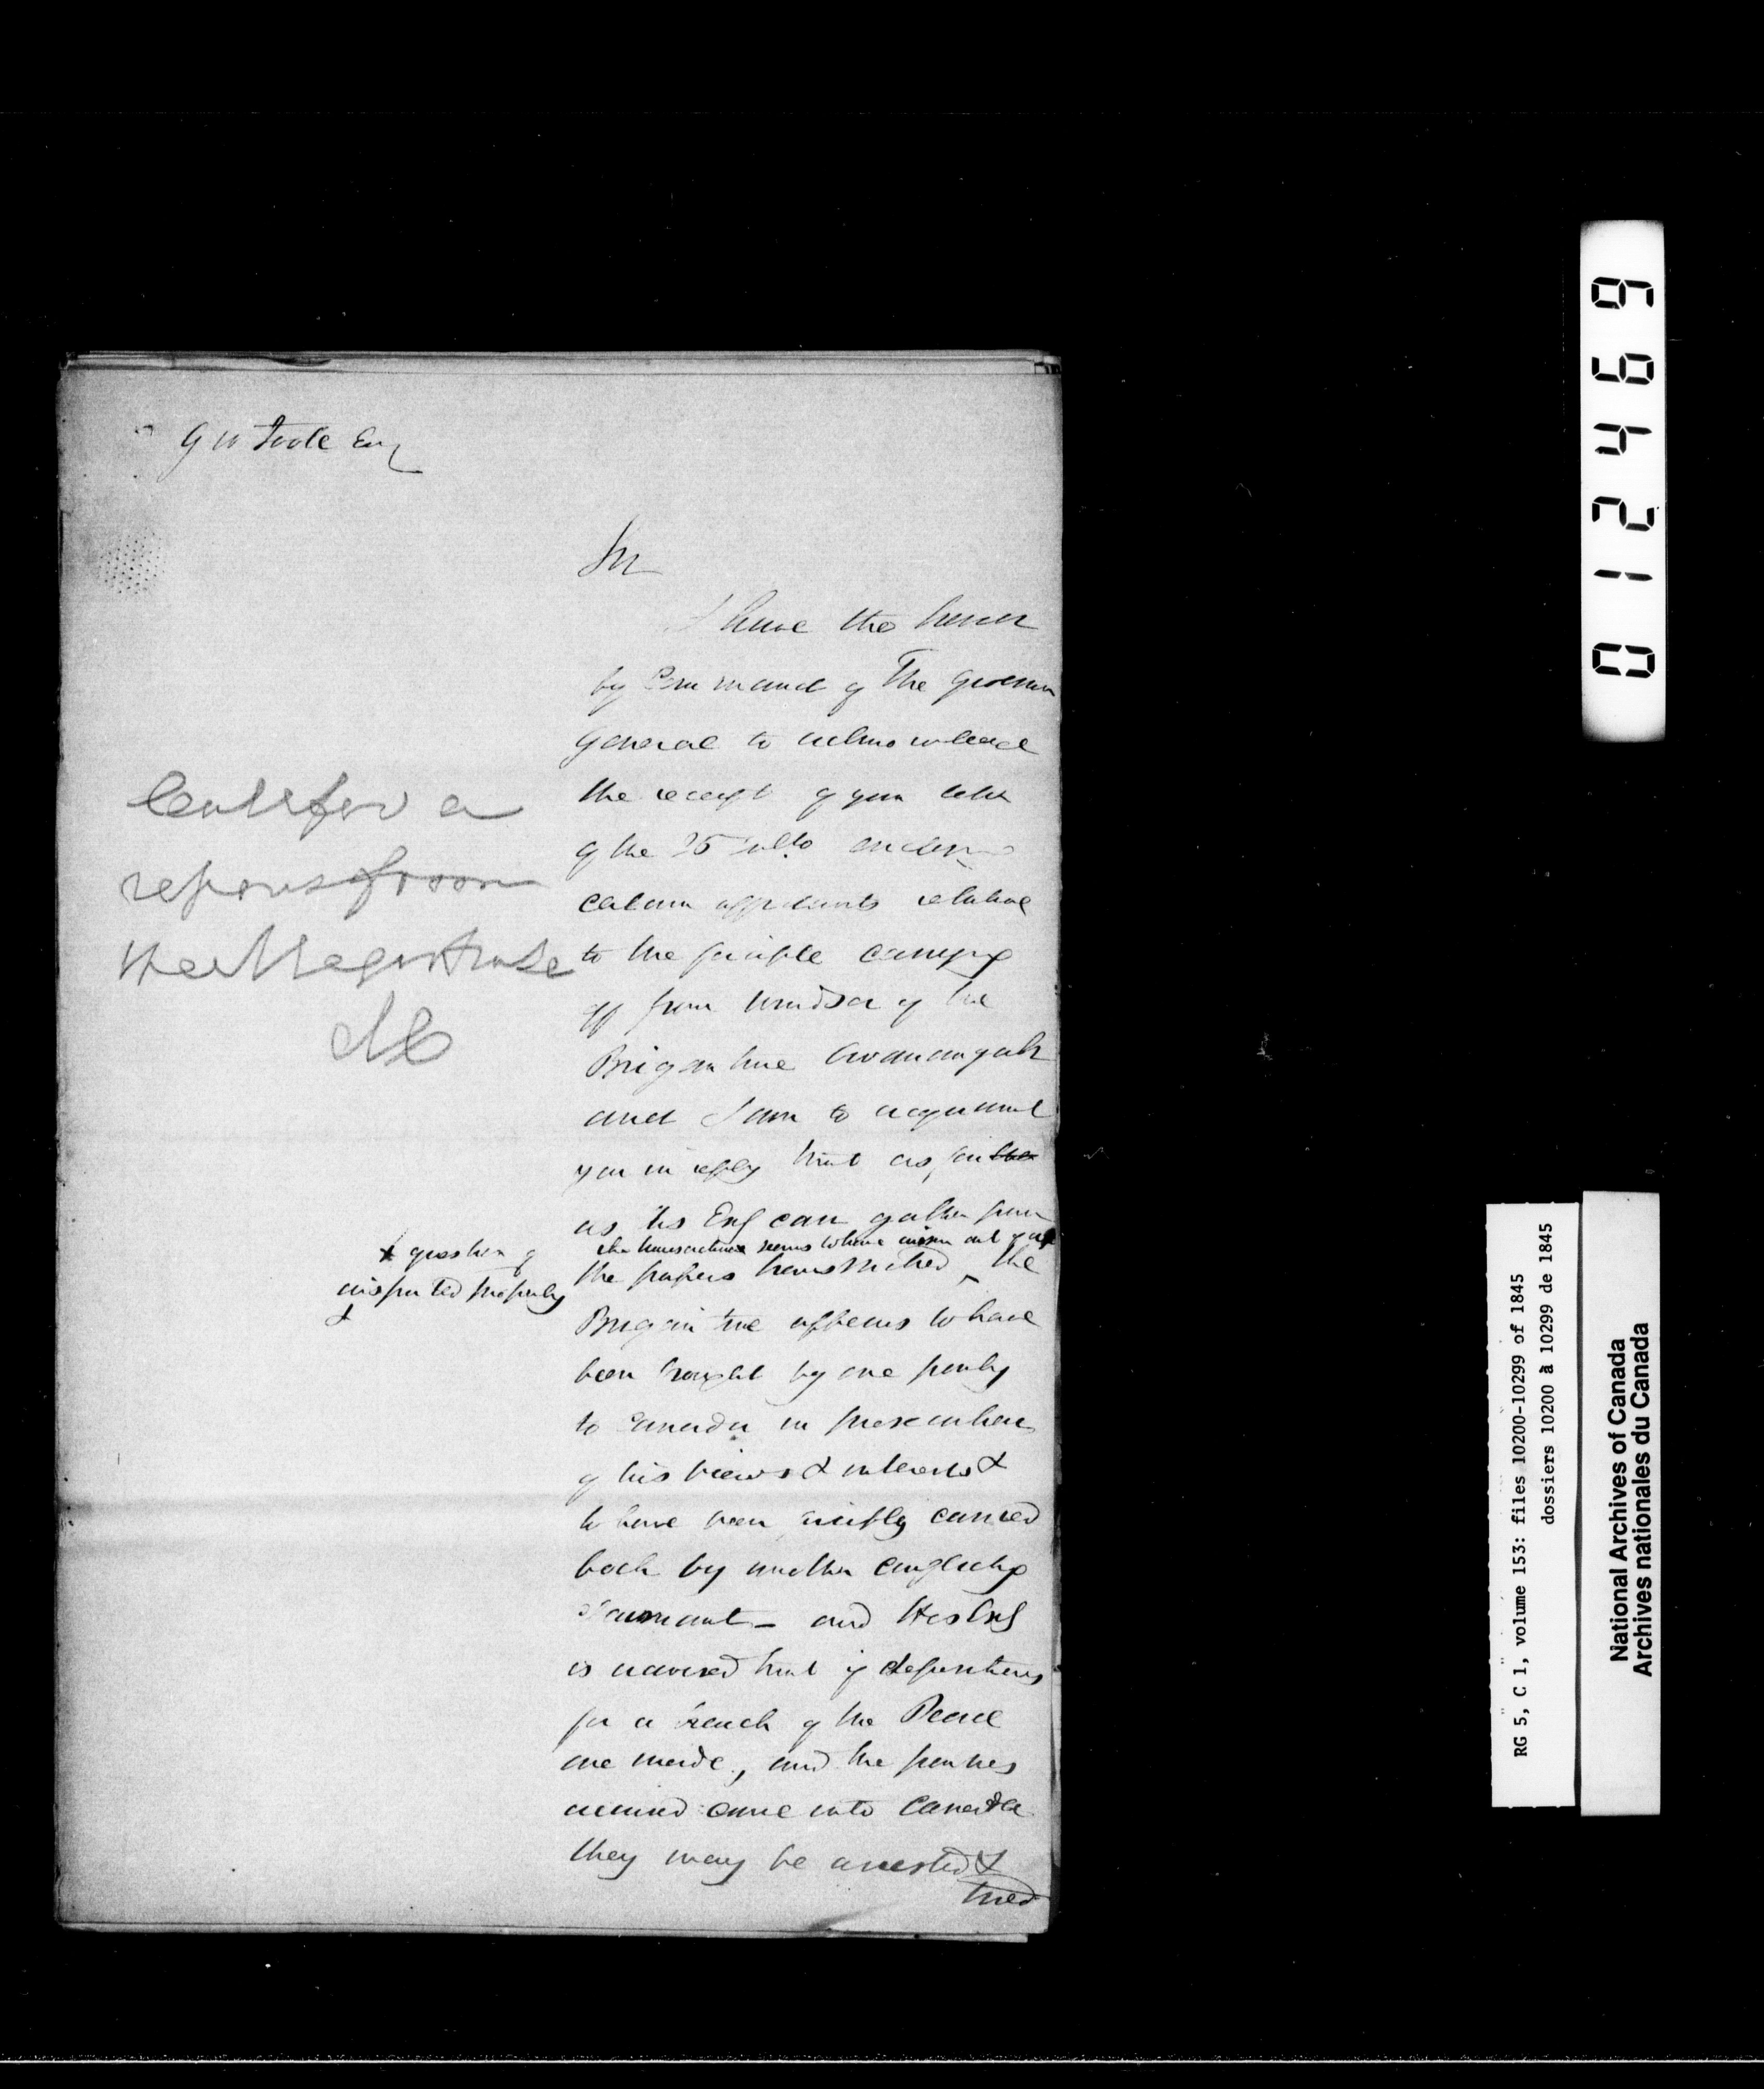 G W Foote Esq
Sir
I have the honor
by Command of The Governor
General to acknowledge
the receipt of your letter
of the 25 ulto enclosing
certain affidavits relative
to the forcible carrying
off from Windsor of the
Brigantine
and I am to acquaint
you in reply that as far
as His Excy can gather from
the papers transmitted, the
the transaction seems to have arisen out of a
x question of
disputed property
&
Brigantine appears to have
been brought by one party
to Canada in prosecution
of his views & interests &
to have been forcibly carried
back by another conflicting
Claimant - and His Excy
is advised that if depositions
for a breach of the Peace
are made, and the parties
accused come into Canada
they may be arrested &
tried
Call for a
report from
the Magistrate
0 1 2 4 6 9
RG 5, C 1, volume 153: files 10200-10299 of 1845
dossiers 10200 à 10299 de 1845
National Archives of Canada
Archives nationales du Canada